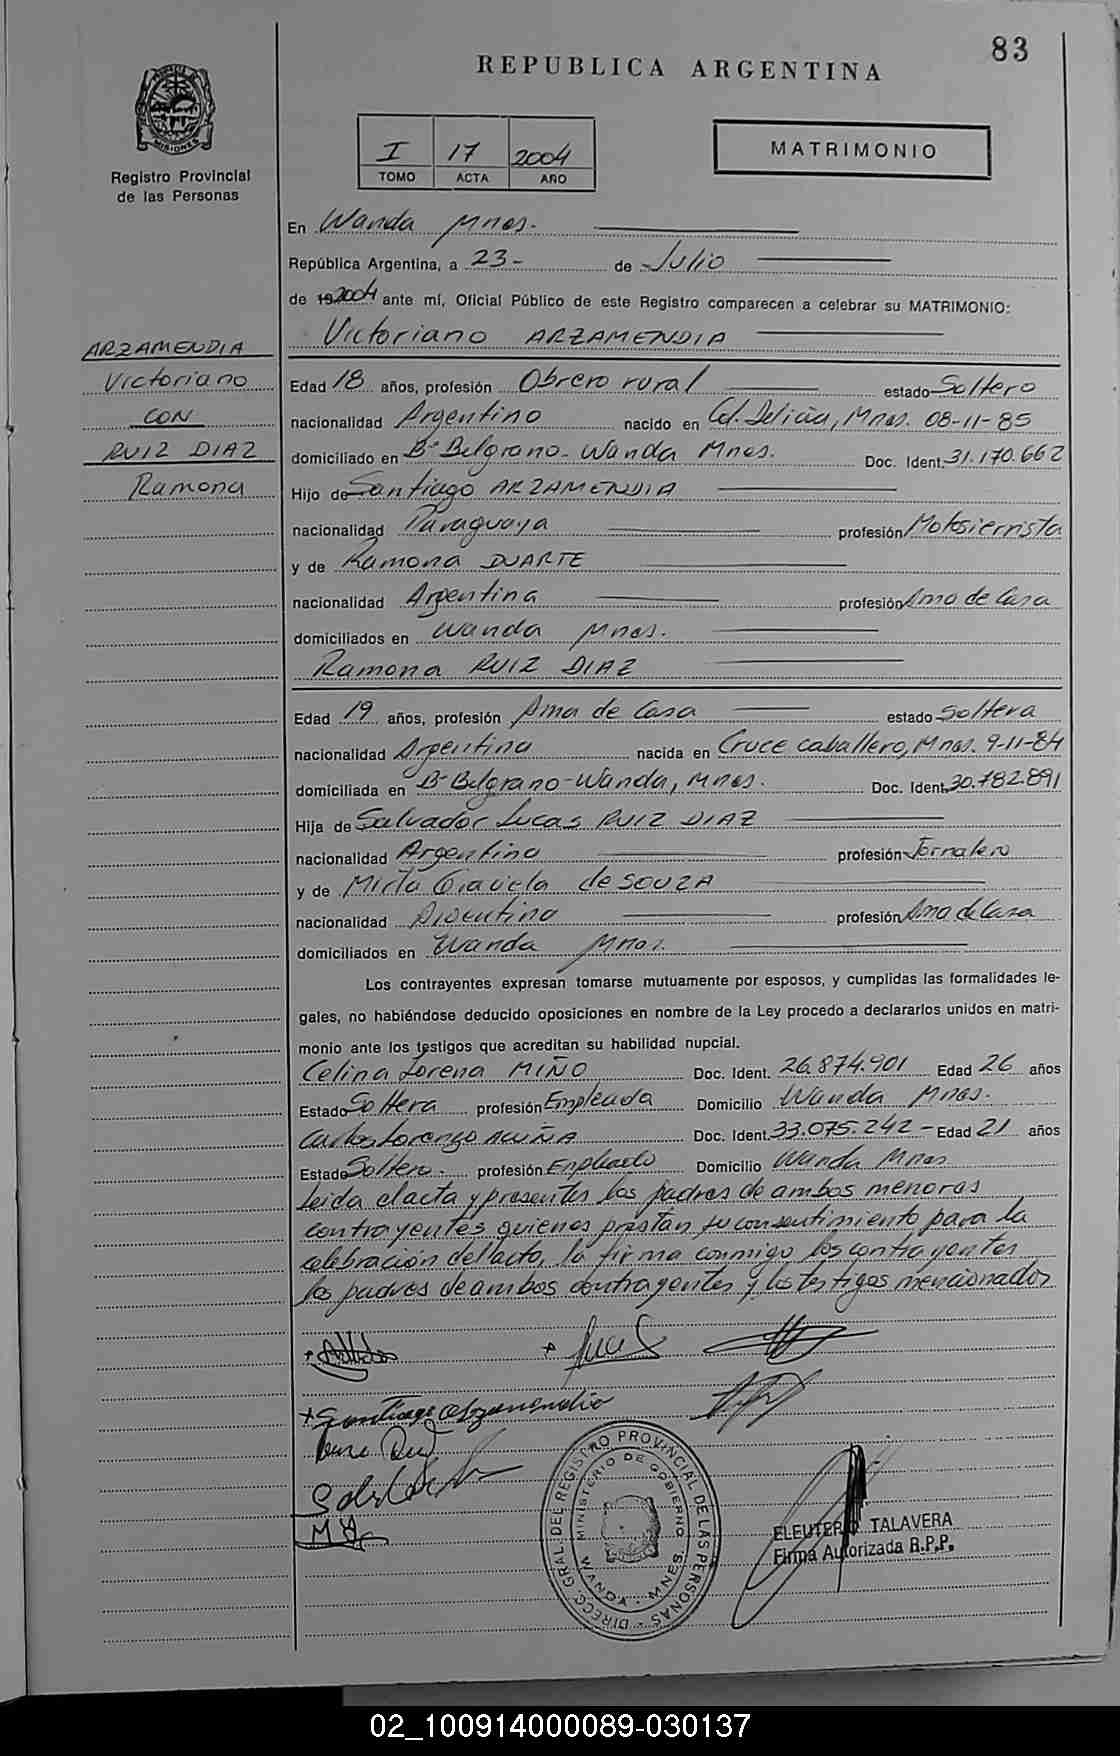 83
REPUBLICA ARGENTINA
PROVINCIA DE MISIONES
Registro Provincial
de las Personas
I 17 2004
TOMO ACTA AÑO
MATRIMONIO
En Wanda Mnes.
República Argentina, a 23- de Julio
de 192004 ante mí, Oficial Público de este Registro comparecen a celebrar su MATRIMONIO:
Victoriano ARZAMENDIA
ARZAMENDIA
Victoriano
CON
RUIZ DIAZ
Ramona
Edad 18 años, profesión Obrero rural estado Soltero
nacionalidad Argentino nacido en Col. Delicia, Mnes. 08-11-85
domiciliado en Bº Belgrano-Wanda Mnes. Doc. Ident. 31.170.662
Hijo de Santiago ARZAMENDIA
nacionalidad Paraguaya profesión Motosierrista
y de Ramona DUARTE
nacionalidad Argentina profesión Ama de Casa
domiciliados en Wanda Mnes.
Ramona RUIZ DIAZ
Edad 19 años, profesión Ama de Casa estado Soltera
nacionalidad Argentina nacida en Cruce caballero, Mnes. 9-11-84
domiciliada en Bº Belgrano-Wanda, Mnes. Doc. Ident. 30.782.891
Hija de Salvador Lucas RUIZ DIAZ
nacionalidad Argentino profesión Jornalero
y de Mirta Graciela de SOUZA
nacionalidad Argentina profesión Ama de Casa
domiciliados en Wanda Mnes.
Los contrayentes expresan tomarse mutuamente por esposos, y cumplidas las formalidades le-
gales, no habiéndose deducido oposiciones en nombre de la Ley procedo a declararlos unidos en matri-
monio ante los testigos que acreditan su habilidad nupcial.
Celina Lorena MIÑO Doc. Ident. 26.874.901 Edad 26 años
Estado Soltera profesión Empleada Domicilio Wanda Mnes.
Carlos Lorenzo ACUÑA Doc. Ident. 33.075.242- Edad 21 años
Estado Soltero. profesión Empleado Domicilio Wanda Mnes
leida el acta y presentes los padres de ambos menores
contrayentes quienes prestan su consentimiento para la
celebración del acto, la firma conmigo los contrayentes
los padres de ambos contrayentes y los testigos mencionados
Santiago Arzamendia
DIRECC. GRAL. DEL REGISTRO PROVINCIAL DE LAS PERSONAS
MINISTERIO DE GOBIERNO
WANDA - MNES.
ELEUTERIO TALAVERA
Firma Autorizada R.P.P.
02_100914000089-030137